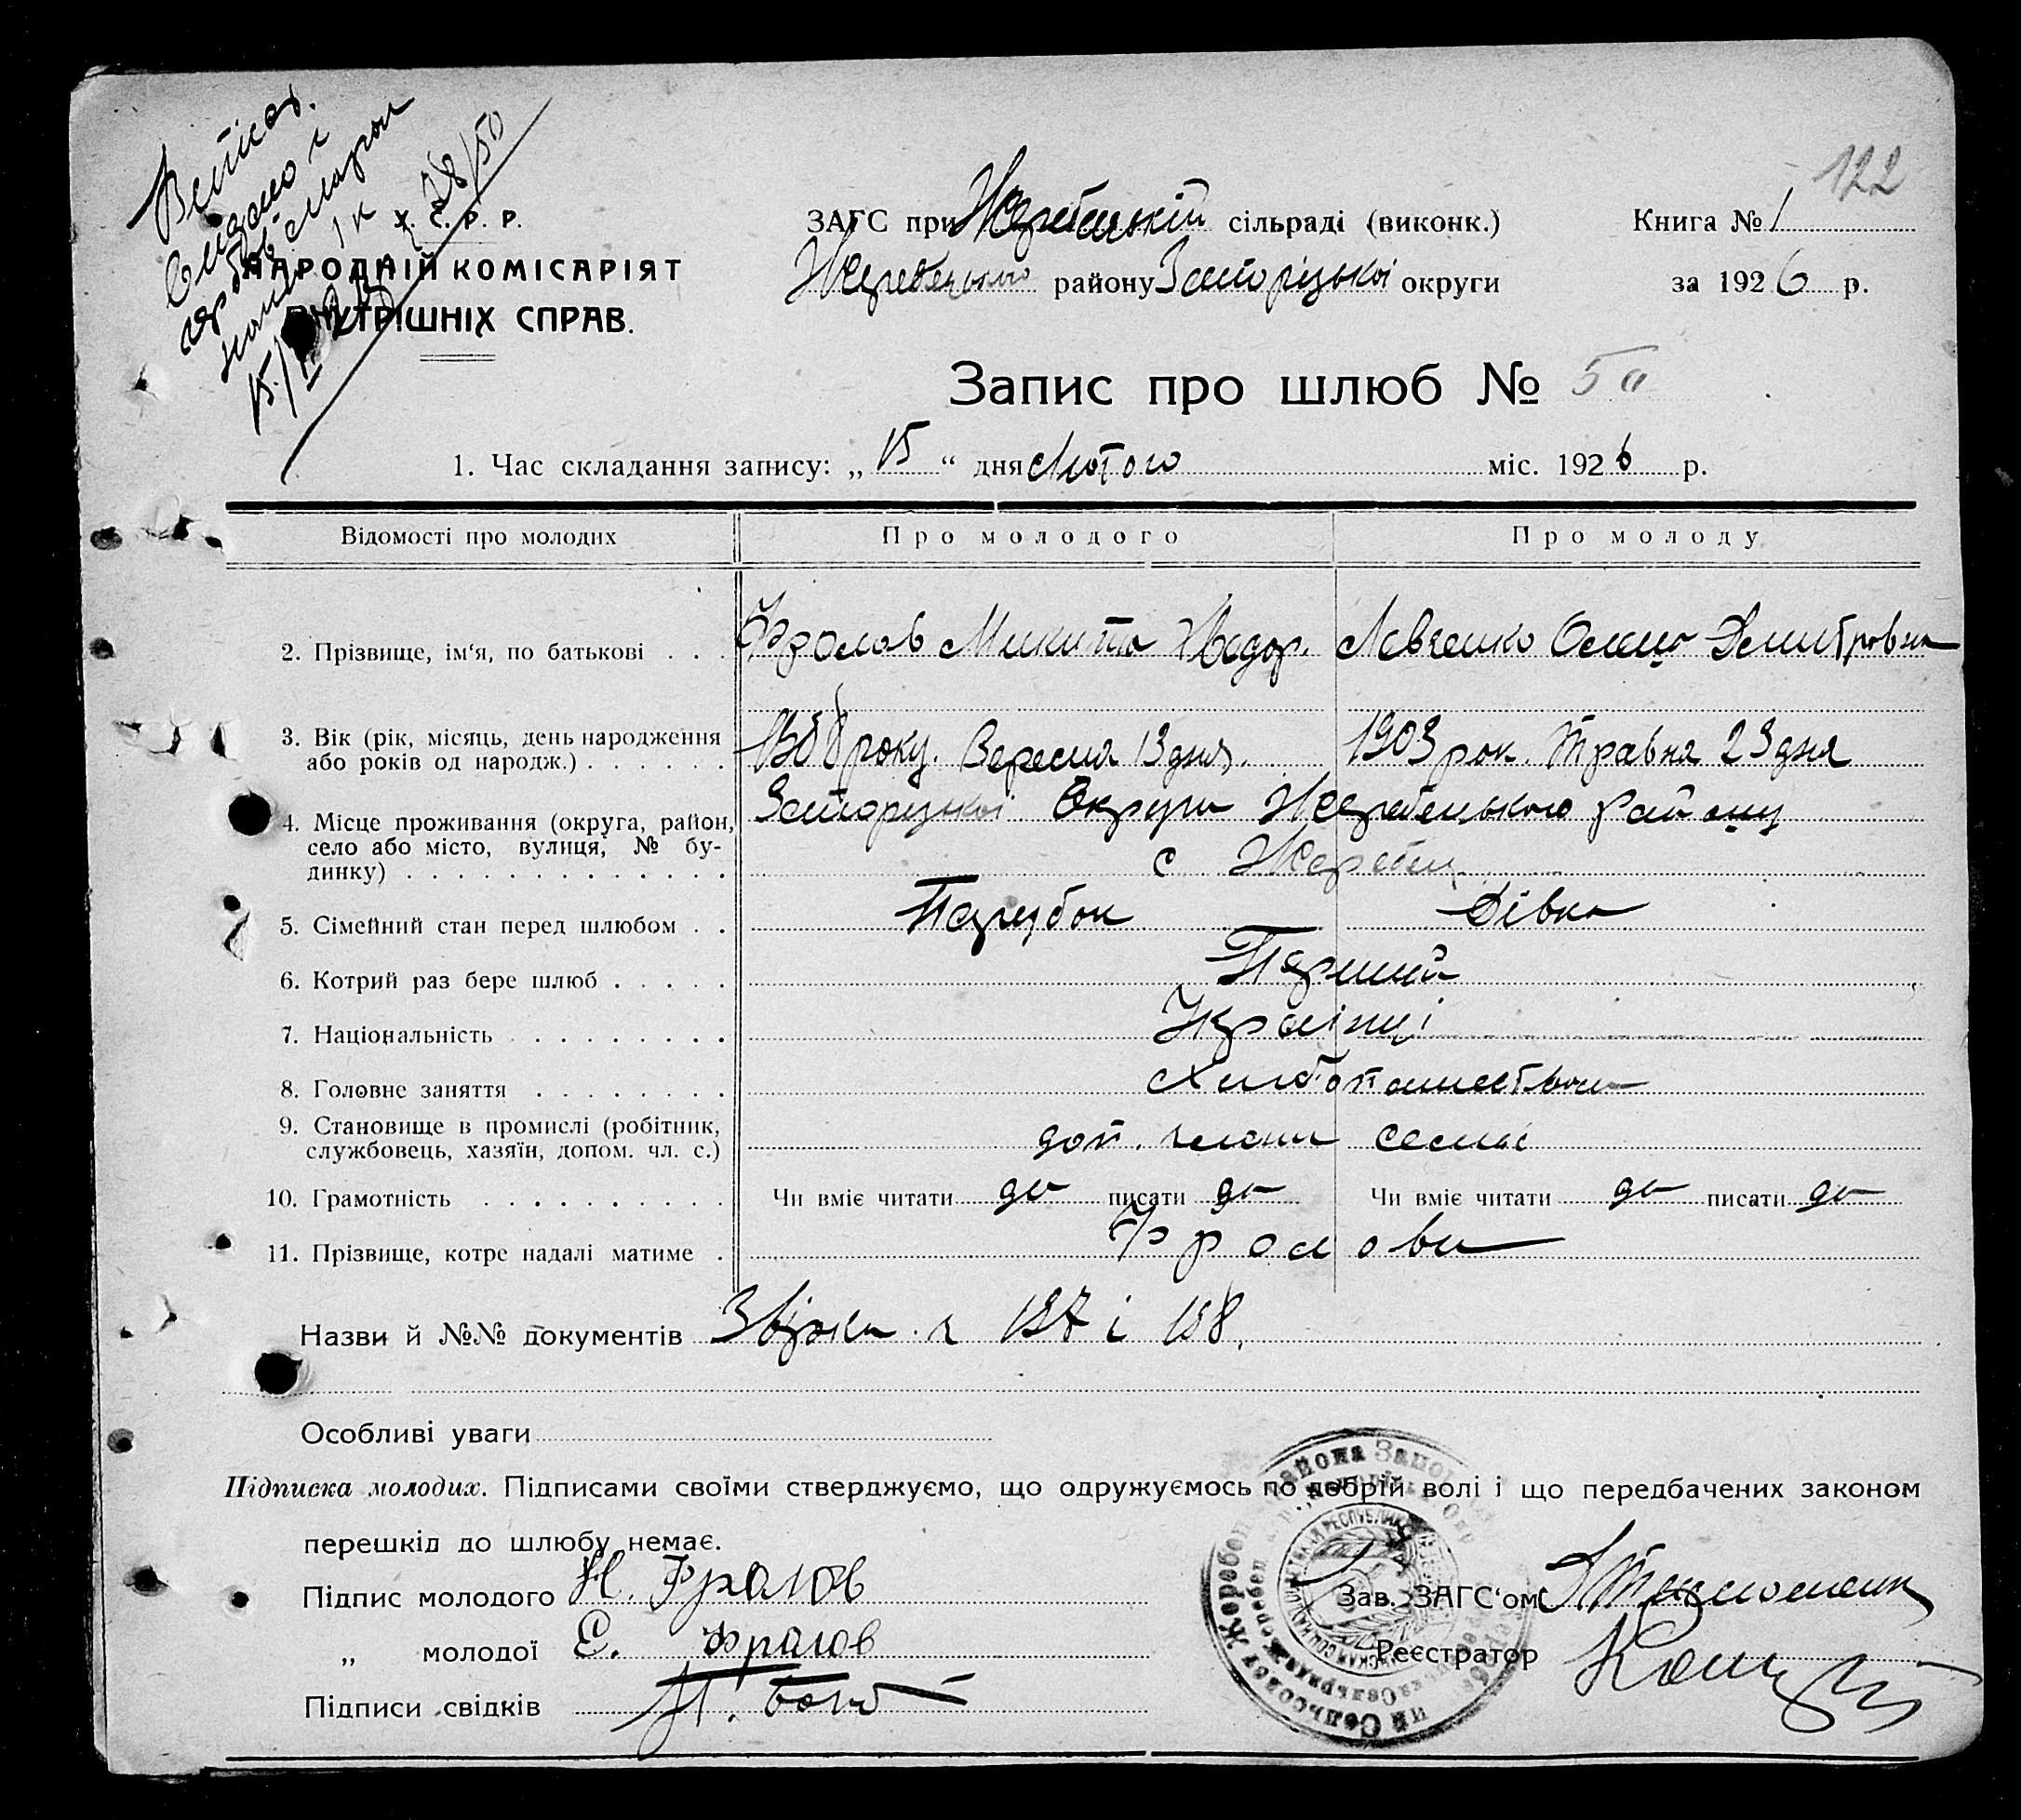 Витяг
видано і
У. С. Р. Р.
НАРОДНІЙ КОМІСАРІЯТ
ВНУТРІШНІХ СПРАВ.
122
ЗАГС при Жеребецькій сільраді (виконк.) Книга № 1
Жеребецького району Запорізької округи за 1926 р.
Запис про шлюб № 50
1. Час складання запису: „ 15 “ дня Лютого міс. 1926 р.
Відомості про молодих Про молодого Про молоду
2. Прізвище, ім‘я, по батькові . . . Фролов Микита Федор. Левченко Олена Дмитровна
3. Вік (рік, місяць, день народження
або років од народж.) . . . . . . року. Вересня 13 дня. 1903 рок. Травня 23 дня
4. Місце проживання (округа, район, Запорізької Округи Жеребецького Району
село або місто, вулиця, № бу-
динку) . . . . . . . . . . . . . с Жеребец
5. Сімейний стан перед шлюбом . . Парубок Дівка
6. Котрий раз бере шлюб . . . . . Перший
7. Національність . . . . . . . . . Українці
8. Головне заняття . . . . . . . . Хліборпашество
9. Становище в промислі (робітник,
службовець, хазяїн, допом. чл. с.) доп. члени семьі
10. Грамотність . . . . . . . . . . Чи вміє читати да писати да Чи вміє читати да писати да
11. Прізвище, котре надалі матиме . Фролови
Назви й №№ документів Звірки ч 157 і 158.
Особливі уваги
Підписка молодих. Підписами своїми стверджуємо, що одружуємось по добрій волі і що передбачених законом
перешкід до шлюбу немає.
Підпис молодого Н. Фролов
„ молодої Е. Фролов
Підписи свідків
Зав. ЗАГС‘ом
Реєстратор